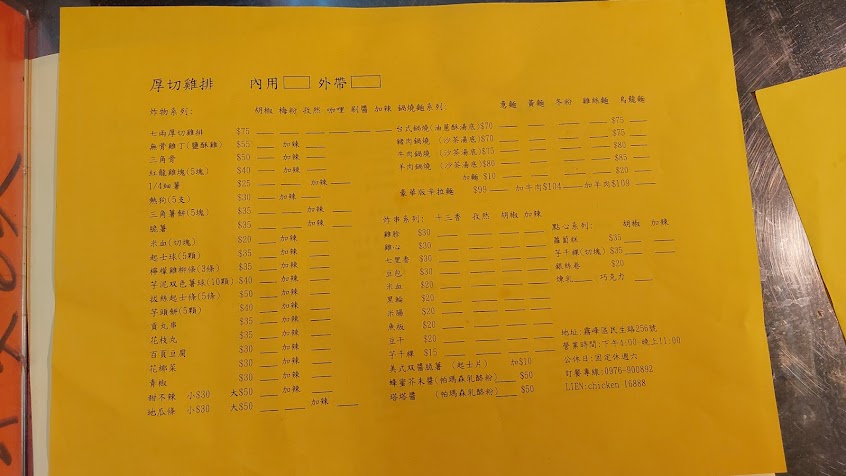 厚切雞排 內用 外帶
炸物系列: 胡椒 梅粉 孜然 咖哩 刷醬 加辣
七兩厚切雞排 $75
無骨雞丁(鹽酥雞) $55 加辣
三角骨 $50 加辣
紅龍雞塊(5塊) $40 加辣
1/4細薯 $25 加辣
熱狗(5支) $30 加辣
三角薯餅(5塊) $35 加辣
脆薯 $35 加辣
米血(切塊) $20 加辣
起士球(5顆) $35 加辣
檸檬雞柳條(3條) $35 加辣
芋泥双色薯球(10顆) $40 加辣
拔絲起士條(5條) $50 加辣
芋頭餅(5顆) $40 加辣
貢丸串 $35 加辣
花枝丸 $35 加辣
百頁豆腐 $30 加辣
花椰菜 $30 加辣
青椒 $30 加辣
甜不辣 小$30 大$50 加辣
地瓜條 小$30 大$50 加辣
鍋燒麵系列: 意麵 黃麵 冬粉 雞絲麵 烏龍麵
台式鍋燒(油蔥酥湯底)$70 $75
豬肉鍋燒 (沙茶湯底)$70 $75
牛肉鍋燒 (沙茶湯底)$75 $80
羊肉鍋燒 (沙茶湯底)$80 $85
加麵 $10 $20
豪華版辛拉麵 $99 加牛肉$104 加羊肉$109
炸串系列: 十三香 孜然 胡椒 加辣
雞胗 $30
雞心 $30
七里香 $30
豆包 $30
米血 $20
黑輪 $20
米腸 $20
魚板 $20
豆干 $20
芋千粿 $15
美式双醬脆薯 (起士片) 加$10
蜂蜜芥末醬(帕瑪森乳酪粉) $50
塔塔醬 (帕瑪森乳酪粉) $50
點心系列: 胡椒 加辣
蘿蔔糕 $35
芋千粿(切塊) $35
銀絲卷 $20
煉乳 巧克力
地址:霧峰區民生路256號
營業時間:下午4:00-晚上11:00
公休日:固定休週六
訂餐專線:0976-900892
LIEN:chicken 16888